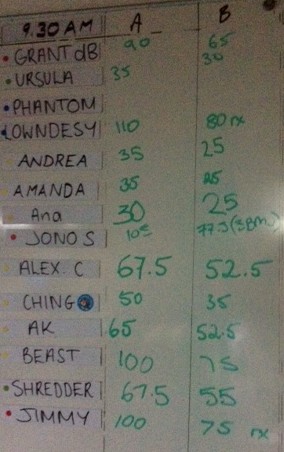 9.30 AM A B
GRANT dB 90 65
URSULA 35 30
PHANTOM
LOWNDESY 110 80 rx
ANDREA 35 25
AMANDA 35 25
Ana 30 25
JONO S 105 77.5 (SBM)
ALEX. C 67.5 52.5
CHING 50 35
AK 65 52.5
BEAST 100 75
SHREDDER 67.5 55
JIMMY 100 75 rx